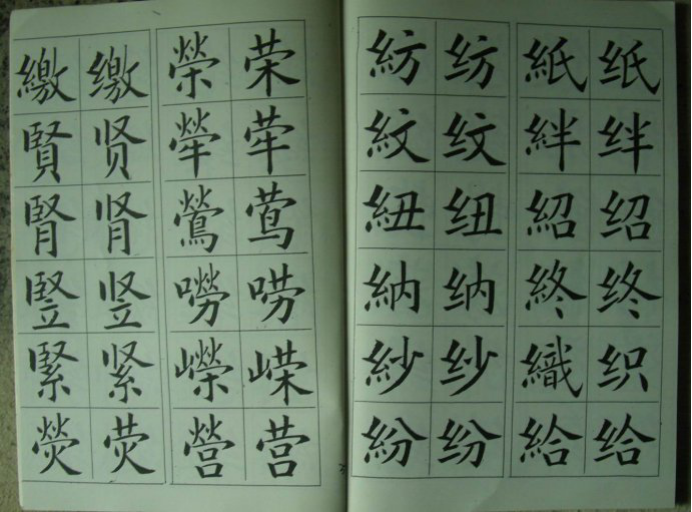 繳缴榮荣
賢贤犖荦
腎肾鶯莺
竪竖嘮唠
緊紧嶸嵘
熒荧營营
紡纺紙纸
紋纹絆绊
紐纽紹绍
納纳終终
紗纱織织
紛纷給给